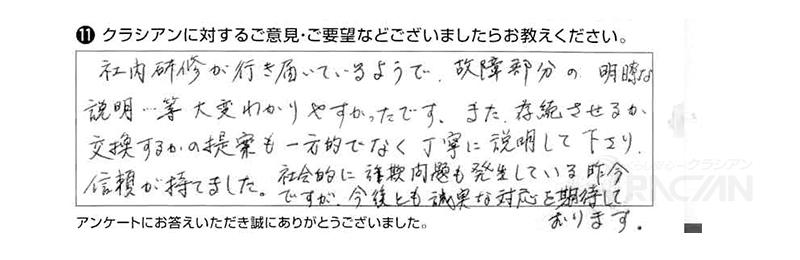 ⑪ クラシアンに対するご意見・ご要望などございましたらお教えください。
社内研修が行き届いているようで、故障部分の 明瞭な
説明…等大変わかりやすかったです、また、存続させるか
交換するかの提案も一方的でなく丁寧に説明して下さり、
信頼が持てました。社会的に詐欺問題も発生している昨今
ですが、今後とも誠実な対応を期待して
おります。
アンケートにお答えいただき誠にありがとうございました。
クラシアン